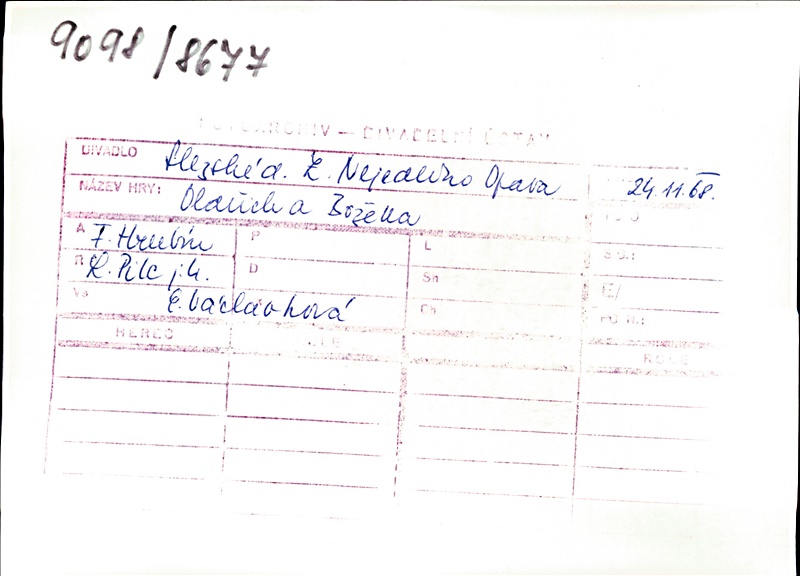 9098/8677
FOTOARCHIV — DIVADELNÍ ÚSTAV
DIVADLO Slezské d. Z. Nejedlého Opava 24.11.68.
NÁZEV HRY: Oldřich a Božena
A F. Hrubín P L
R K. Pilc j.h. D Sh
Vs E. Václavková Ch
HEREC ROLE ROLE